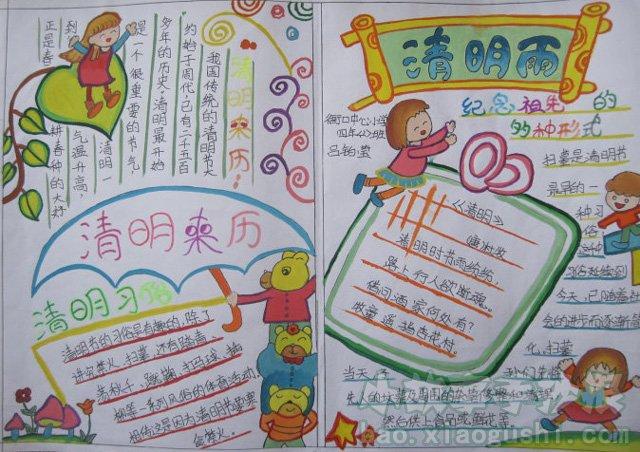 清明来历:
我国传统的清明节大
约始于周代,已有二千五百
多年的历史。清明最开始
是一个很重要的节气
清明一
到
气温升高,
正是春
耕春种的大好
清明来历
清明习俗
清明节的习俗是有趣的,除了
讲究禁火、扫墓,还有踏青、
荡秋千、蹴鞠、打马球、插
柳等一系列风俗的体育活动。
相传这是因为清明节要寒
食禁火。
清明雨
纪念祖先的
的种形式
中心小学
四年(2)班
《清明》
唐杜牧
清明时节雨纷纷,
路上行人欲断魂。
借问酒家何处有?
牧童遥指杏花村。
扫墓是清明节
最早的一
种习
俗这种
习俗延续到
今天,已随着社
会的进步而逐渐简
化。扫墓
当天,子孙们先将
先人的坟墓及周围的杂草修整和清理,
然后供上食品或鲜花等。
bao.xiaogushi.com